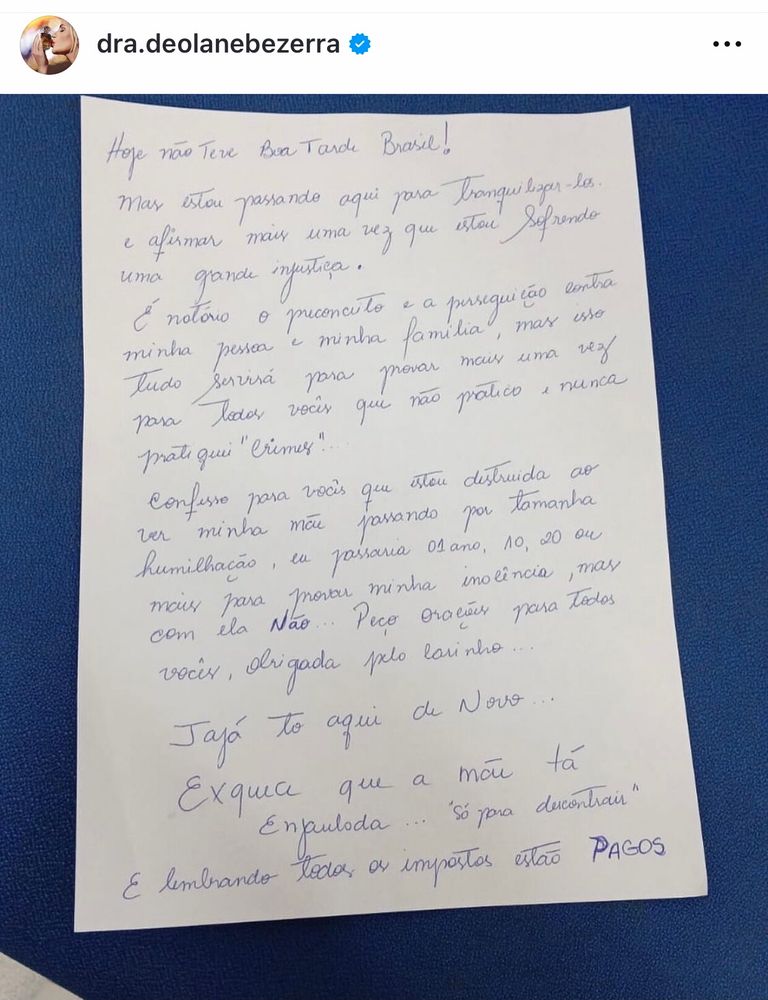 dra.deolanebezerra
Hoje não Teve Boa Tarde Brasil!
Mas estou passando aqui para Tranquilizar-los.
e afirmar mais uma vez que estou Sofrendo
uma grande injustiça.
É notório o preconceito e a perseguição contra
minha pessoa e minha família, mas isso
Tudo Servirá para provar mais uma vez
para Todos vocês que não pratico e nunca
pratiquei "Crimes"...
Confesso para vocês que estou destruida ao
ver minha mãe passando por tamanha
humilhação, eu passaria 01 ano, 10, 20 ou
mais para provar minha inocência, mas
com ela Não... Peço orações para Todos
vocês, Obrigada pelo Carinho...
Jajá to aqui de Novo...
Exquece que a mãe tá
Enjaulada... "Só para descontrair"
E lembrando todos os impostos estão PAGOS